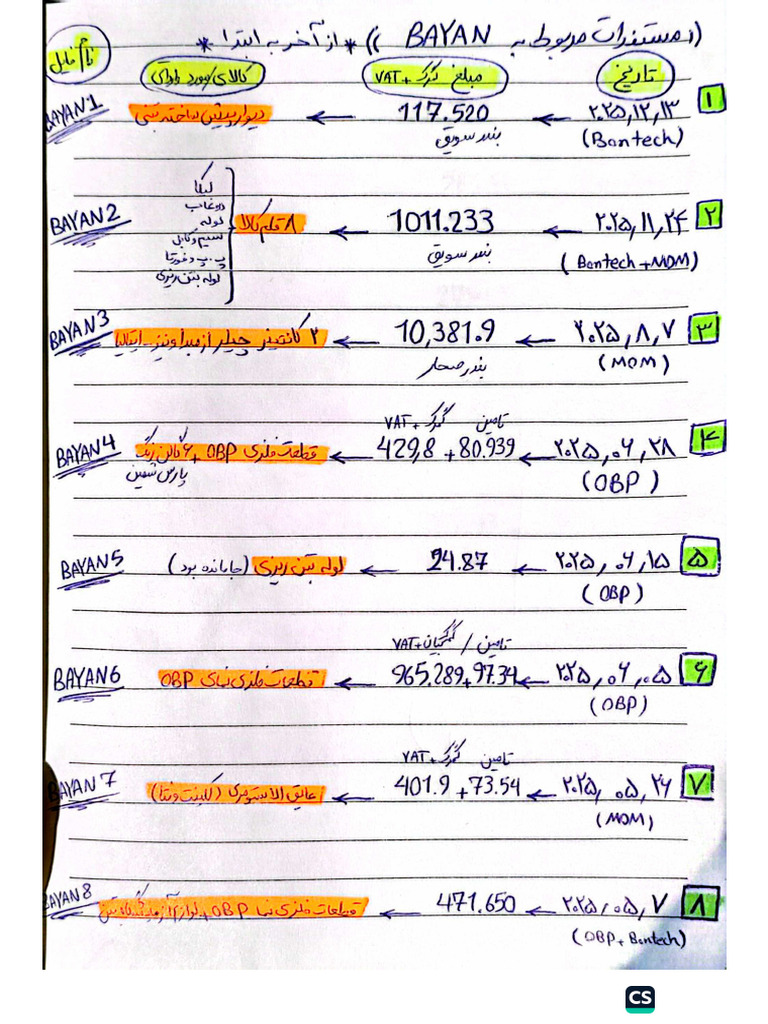 ((مستندات مربوط به BAYAN)) * از آخر به ابتدا *
تاریخ مبلغ گمرک + VAT کالای مورد واردی نام فایل
۱ ۲۰۲۵,۱۲,۱۳ ← 117.520 ← دیوار پیش ساخته بتنی BAYAN1
(Bontech) بندر سویق
لیکا
دوغاب
۲ ۲۰۲۵,۱۱,۲۴ ← 1011.233 ← ۸ قلم کالا لوله BAYAN2
سیم و کابل
(Bontech + MOM) بندر سویق
لوله بتن ریزی
۳ ۲۰۲۵,۸,۷ ← 10,381.9 ← ۲ کانتینر چیلر از مبدا ونیز - ایتالیا BAYAN3
(MOM) بندر صحار
تامین گمرک + VAT
۴ ۲۰۲۵,۰۶,۲۸ ← 429,8 + 80.939 ← قطعات فلزی OBP + ۶ گالن رنگ BAYAN4
(OBP) پارس
۵ ۲۰۲۵,۰۶,۱۵ ← 24.87 ← لوله بتن ریزی (جامانده بود) BAYAN5
(OBP)
تامین / VAT+
۶ ۲۰۲۵,۰۶,۰۵ ← 965.289 + 97.34 ← قطعات فلزی نمای OBP BAYAN6
(OBP)
تامین گمرک + VAT
۷ ۲۰۲۵,۰۵,۲۶ ← 401.9 + 73.54 ← عایق الاستومری BAYAN7
(MOM)
۸ ۲۰۲۵,۰۵,۷ ← 471.650 ← قطعات فلزی نما OBP + لوازم BAYAN8
(OBP + Bontech)
CS